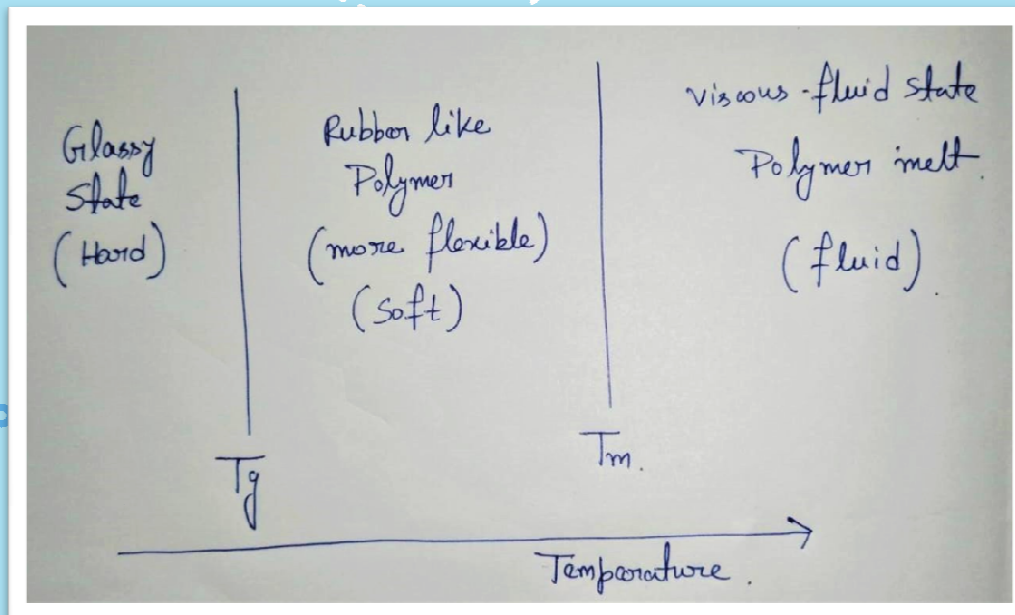 Glassy
State
(Hard)
Rubber like
Polymer
(more flexible)
(Soft)
Viscous-fluid state
Polymer melt.
(fluid).
Tg
Tm.
Temperature.